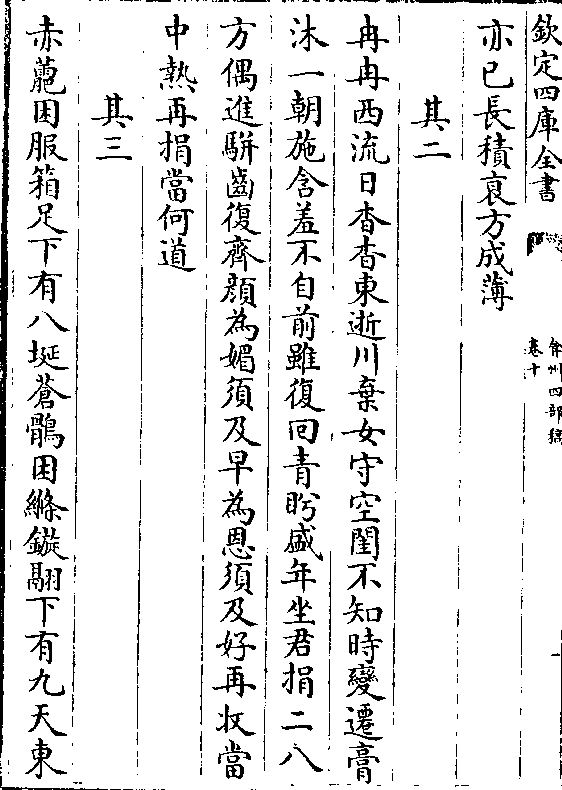 欽定四庫全書
弇州四部稿
卷十
亦已長積哀方成薄
其二
冉冉西流日杳杳東逝川棄女守空閨不知時變遷膏
沐一朝施含羞不自前雖復回青盻盛年坐君捐二八
方偶進駢齒復齊顔為媚須及早為恩須及好再收當
中熱再捐當何道
其三
赤驥困服箱足下有八埏蒼鶻困絛鏇翮下有九天東